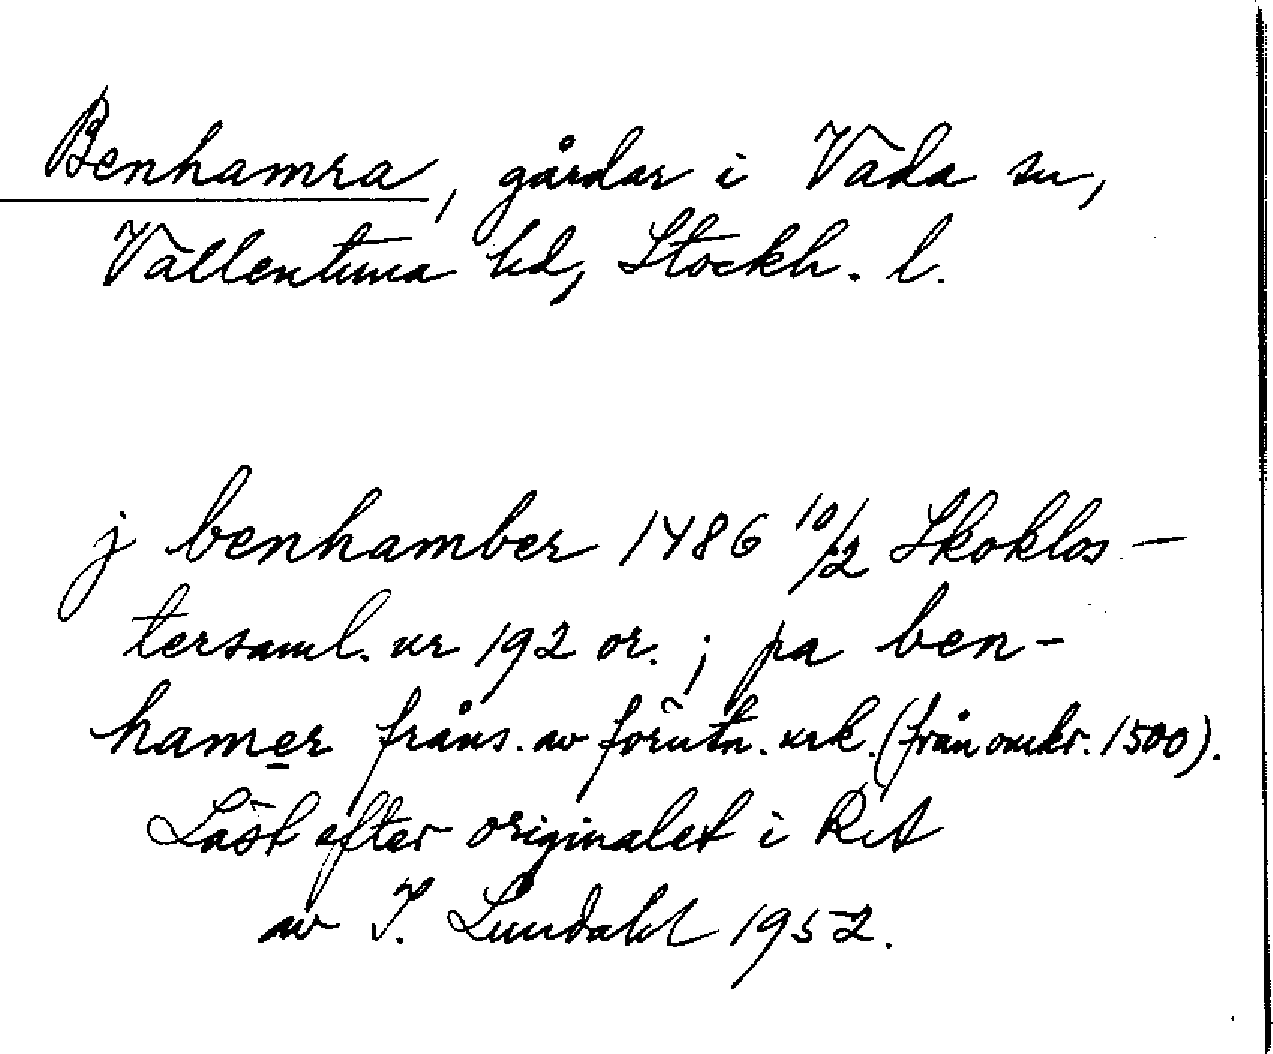 Benhamra, gårdar i Vada sn,
Vallentuna hd, Stockh. l.
j benhamber 1486 10/2 Skoklos-
tersaml. nr 192 or. ; pa ben-
hamer fråns. av förutn. urk. (från omkr. 1500).
Läst efter originalet i RA
av I. Lundahl 1952.